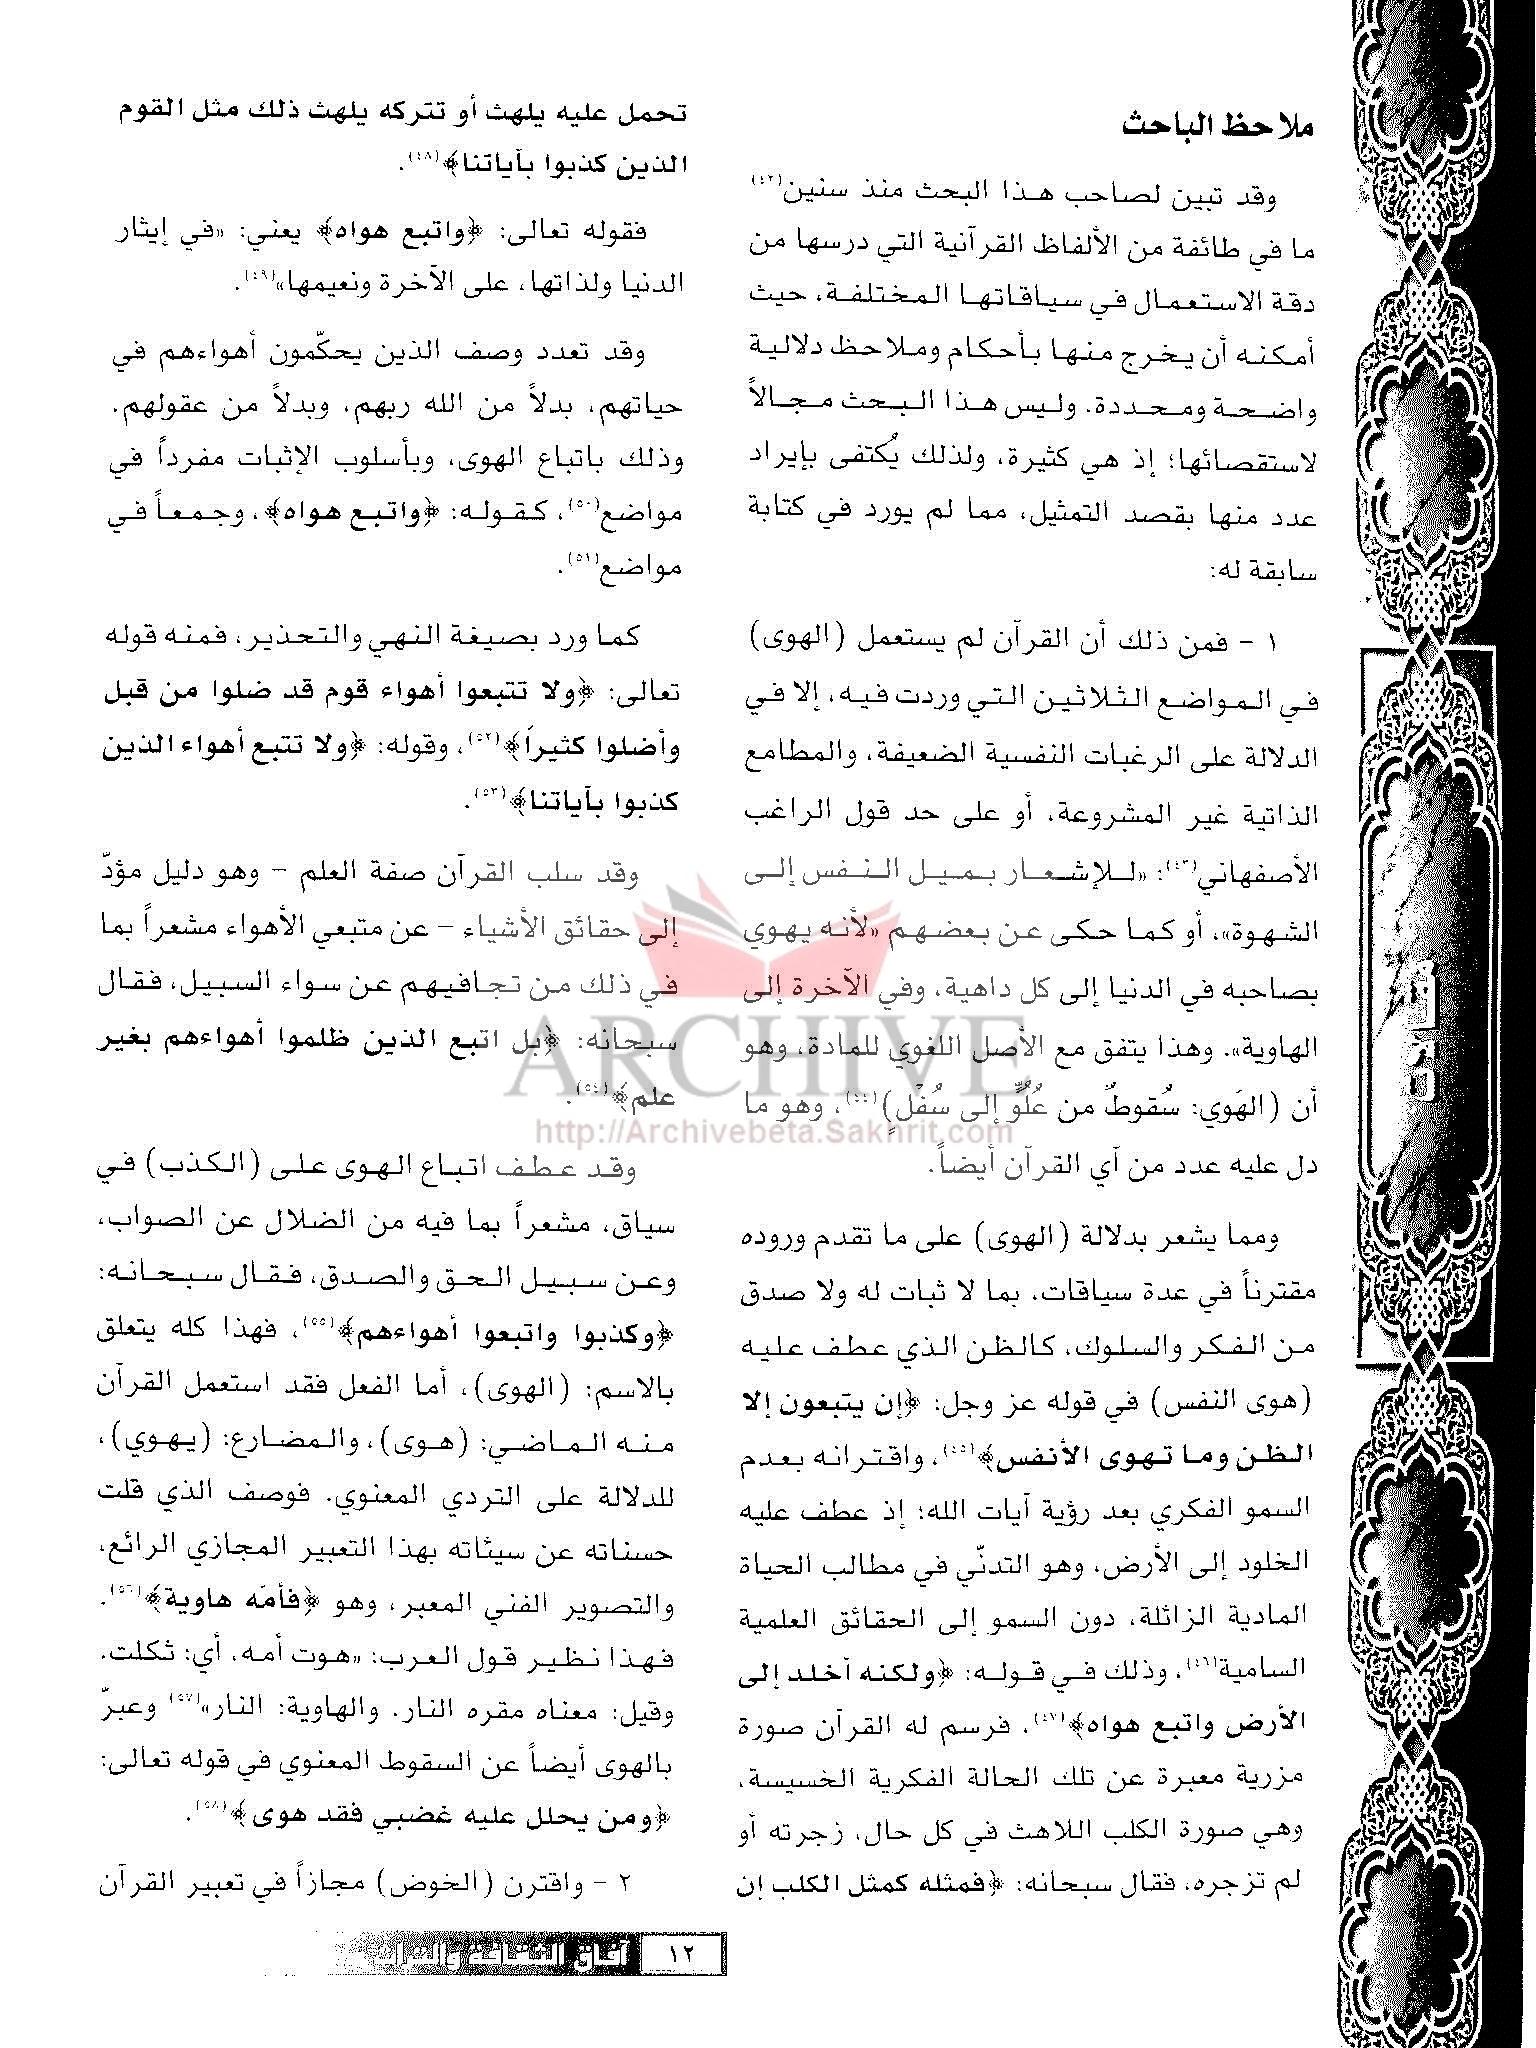 ملاحظ الباحث
وقد تبين لصاحب هذا البحث منذ سنين(٤٢)
ما في طائفة من الألفاظ القرآنية التي درسها من
دقة الاستعمال في سياقاتها المختلفة، حيث
أمكنه أن يخرج منها بأحكام وملاحظ دلالية
واضحة ومحددة. وليس هذا البحث مجالاً
لاستقصائها؛ إذ هي كثيرة، ولذلك يُكتفى بإيراد
عدد منها بقصد التمثيل، مما لم يورد في كتابة
سابقة له:
١ - فمن ذلك أن القرآن لم يستعمل (الهوى)
في المواضع الثلاثين التي وردت فيه، إلا في
الدلالة على الرغبات النفسية الضعيفة، والمطامع
الذاتية غير المشروعة، أو على حد قول الراغب
الأصفهاني(٤٣): «للإشعار بميل النفس إلى
الشهوة»، أو كما حكى عن بعضهم «لأنه يهوي
بصاحبه في الدنيا إلى كل داهية، وفي الآخرة إلى
الهاوية». وهذا يتفق مع الأصل اللغوي للمادة، وهو
أن (الهَوي: سُقوطٌ من عُلُوٍّ إلى سُفْلٍ)(٤٤)، وهو ما
دل عليه عدد من آي القرآن أيضاً.
ومما يشعر بدلالة (الهوى) على ما تقدم وروده
مقترناً في عدة سياقات، بما لا ثبات له ولا صدق
من الفكر والسلوك، كالظن الذي عطف عليه
(هوى النفس) في قوله عز وجل: ﴿إن يتبعون إلا
الظن وما تهوى الأنفس﴾(٤٥)، واقترانه بعدم
السمو الفكري بعد رؤية آيات الله؛ إذ عطف عليه
الخلود إلى الأرض، وهو التدنّي في مطالب الحياة
المادية الزائلة، دون السمو إلى الحقائق العلمية
السامية(٤٦)، وذلك في قوله: ﴿ولكنه أخلد إلى
الأرض واتبع هواه﴾(٤٧)، فرسم له القرآن صورة
مزرية معبرة عن تلك الحالة الفكرية الخسيسة،
وهي صورة الكلب اللاهث في كل حال، زجرته أو
لم تزجره، فقال سبحانه: ﴿فمثله كمثل الكلب إن
تحمل عليه يلهث أو تتركه يلهث ذلك مثل القوم
الذين كذبوا بآياتنا﴾(٤٨).
فقوله تعالى: ﴿واتبع هواه﴾ يعني: «في إيثار
الدنيا ولذاتها، على الآخرة ونعيمها»(٤٩).
وقد تعدد وصف الذين يحكّمون أهواءهم في
حياتهم، بدلاً من الله ربهم، وبدلاً من عقولهم.
وذلك باتباع الهوى، وبأسلوب الإثبات مفرداً في
مواضع(٥٠)، كقوله: ﴿واتبع هواه﴾، وجمعاً في
مواضع(٥١).
كما ورد بصيغة النهي والتحذير، فمنه قوله
تعالى: ﴿ولا تتبعوا أهواء قوم قد ضلوا من قبل
وأضلوا كثيراً﴾(٥٢)، وقوله: ﴿ولا تتبع أهواء الذين
كذبوا بآياتنا﴾(٥٣).
وقد سلب القرآن صفة العلم - وهو دليل مؤدّ
إلى حقائق الأشياء - عن متبعي الأهواء مشعراً بما
في ذلك من تجافيهم عن سواء السبيل، فقال
سبحانه: ﴿بل اتبع الذين ظلموا أهواءهم بغير
علم﴾(٥٤).
وقد عطف اتباع الهوى على (الكذب) في
سياق، مشعراً بما فيه من الضلال عن الصواب،
وعن سبيل الحق والصدق، فقال سبحانه:
﴿وكذبوا واتبعوا أهواءهم﴾(٥٥)، فهذا كله يتعلق
بالاسم: (الهوى)، أما الفعل فقد استعمل القرآن
منه الماضي: (هوى)، والمضارع: (يهوي)،
للدلالة على التردي المعنوي. فوصف الذي قلت
حسناته عن سيئاته بهذا التعبير المجازي الرائع،
والتصوير الفني المعبر، وهو ﴿فأمّه هاوية﴾(٥٦).
فهذا نظير قول العرب: «هوت أمه، أي: ثكلت.
وقيل: معناه مقره النار. والهاوية: النار»(٥٧) وعبّر
بالهوى أيضاً عن السقوط المعنوي في قوله تعالى:
﴿ومن يحلل عليه غضبي فقد هوى﴾(٥٨).
٢ - واقترن (الخوض) مجازاً في تعبير القرآن
مقالات
آفاق الثقافة والتراث
١٢
ARCHIVE
http://Archivebeta.Sakhrit.com